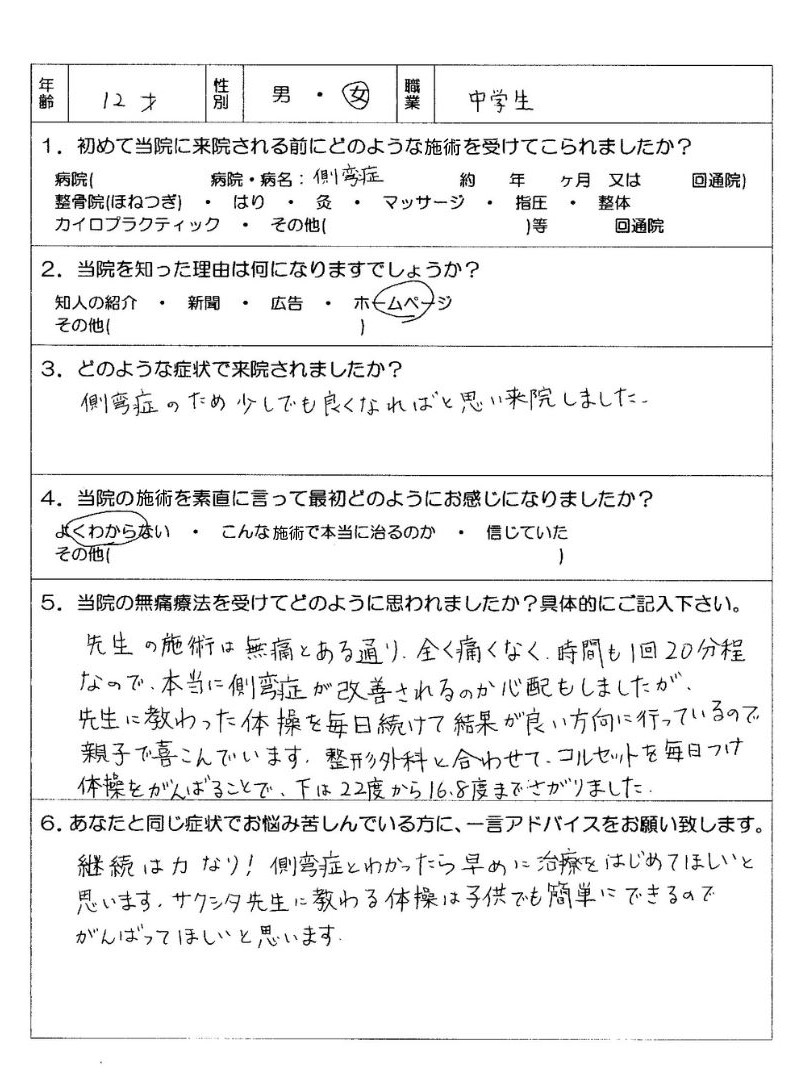 年齢 12才 性別 男 ・ 女 職業 中学生
1. 初めて当院に来院される前にどのような施術を受けてこられましたか？
病院( 病院・病名：側弯症 約 年 ヶ月 又は 回通院)
整骨院(ほねつぎ) ・ はり ・ 灸 ・ マッサージ ・ 指圧 ・ 整体
カイロプラクティック ・ その他( )等 回通院
2. 当院を知った理由は何になりますでしょうか？
知人の紹介 ・ 新聞 ・ 広告 ・ ホームページ
その他( )
3. どのような症状で来院されましたか？
側弯症のため少しでも良くなればと思い来院しました.
4. 当院の施術を素直に言って最初どのようにお感じになりましたか？
よくわからない ・ こんな施術で本当に治るのか ・ 信じていた
その他( )
5. 当院の無痛療法を受けてどのように思われましたか？具体的にご記入下さい。
先生の施術は無痛とある通り、全く痛くなく、時間も1回20分程
なので、本当に側弯症が改善されるのか心配もしましたが、
先生に教わった体操を毎日続けて結果が良い方向に行っているので
親子で喜こんでいます. 整形外科と合わせて、コルセットを毎日つけ
体操をがんばることで、下は22度から16.8度までさがりました.
6. あなたと同じ症状でお悩み苦しんでいる方に、一言アドバイスをお願い致します。
継続は力なり！側弯症とわかったら早めに治療をはじめてほしいと
思います. サクシタ先生に教わる体操は子供でも簡単にできるので
がんばってほしいと思います.